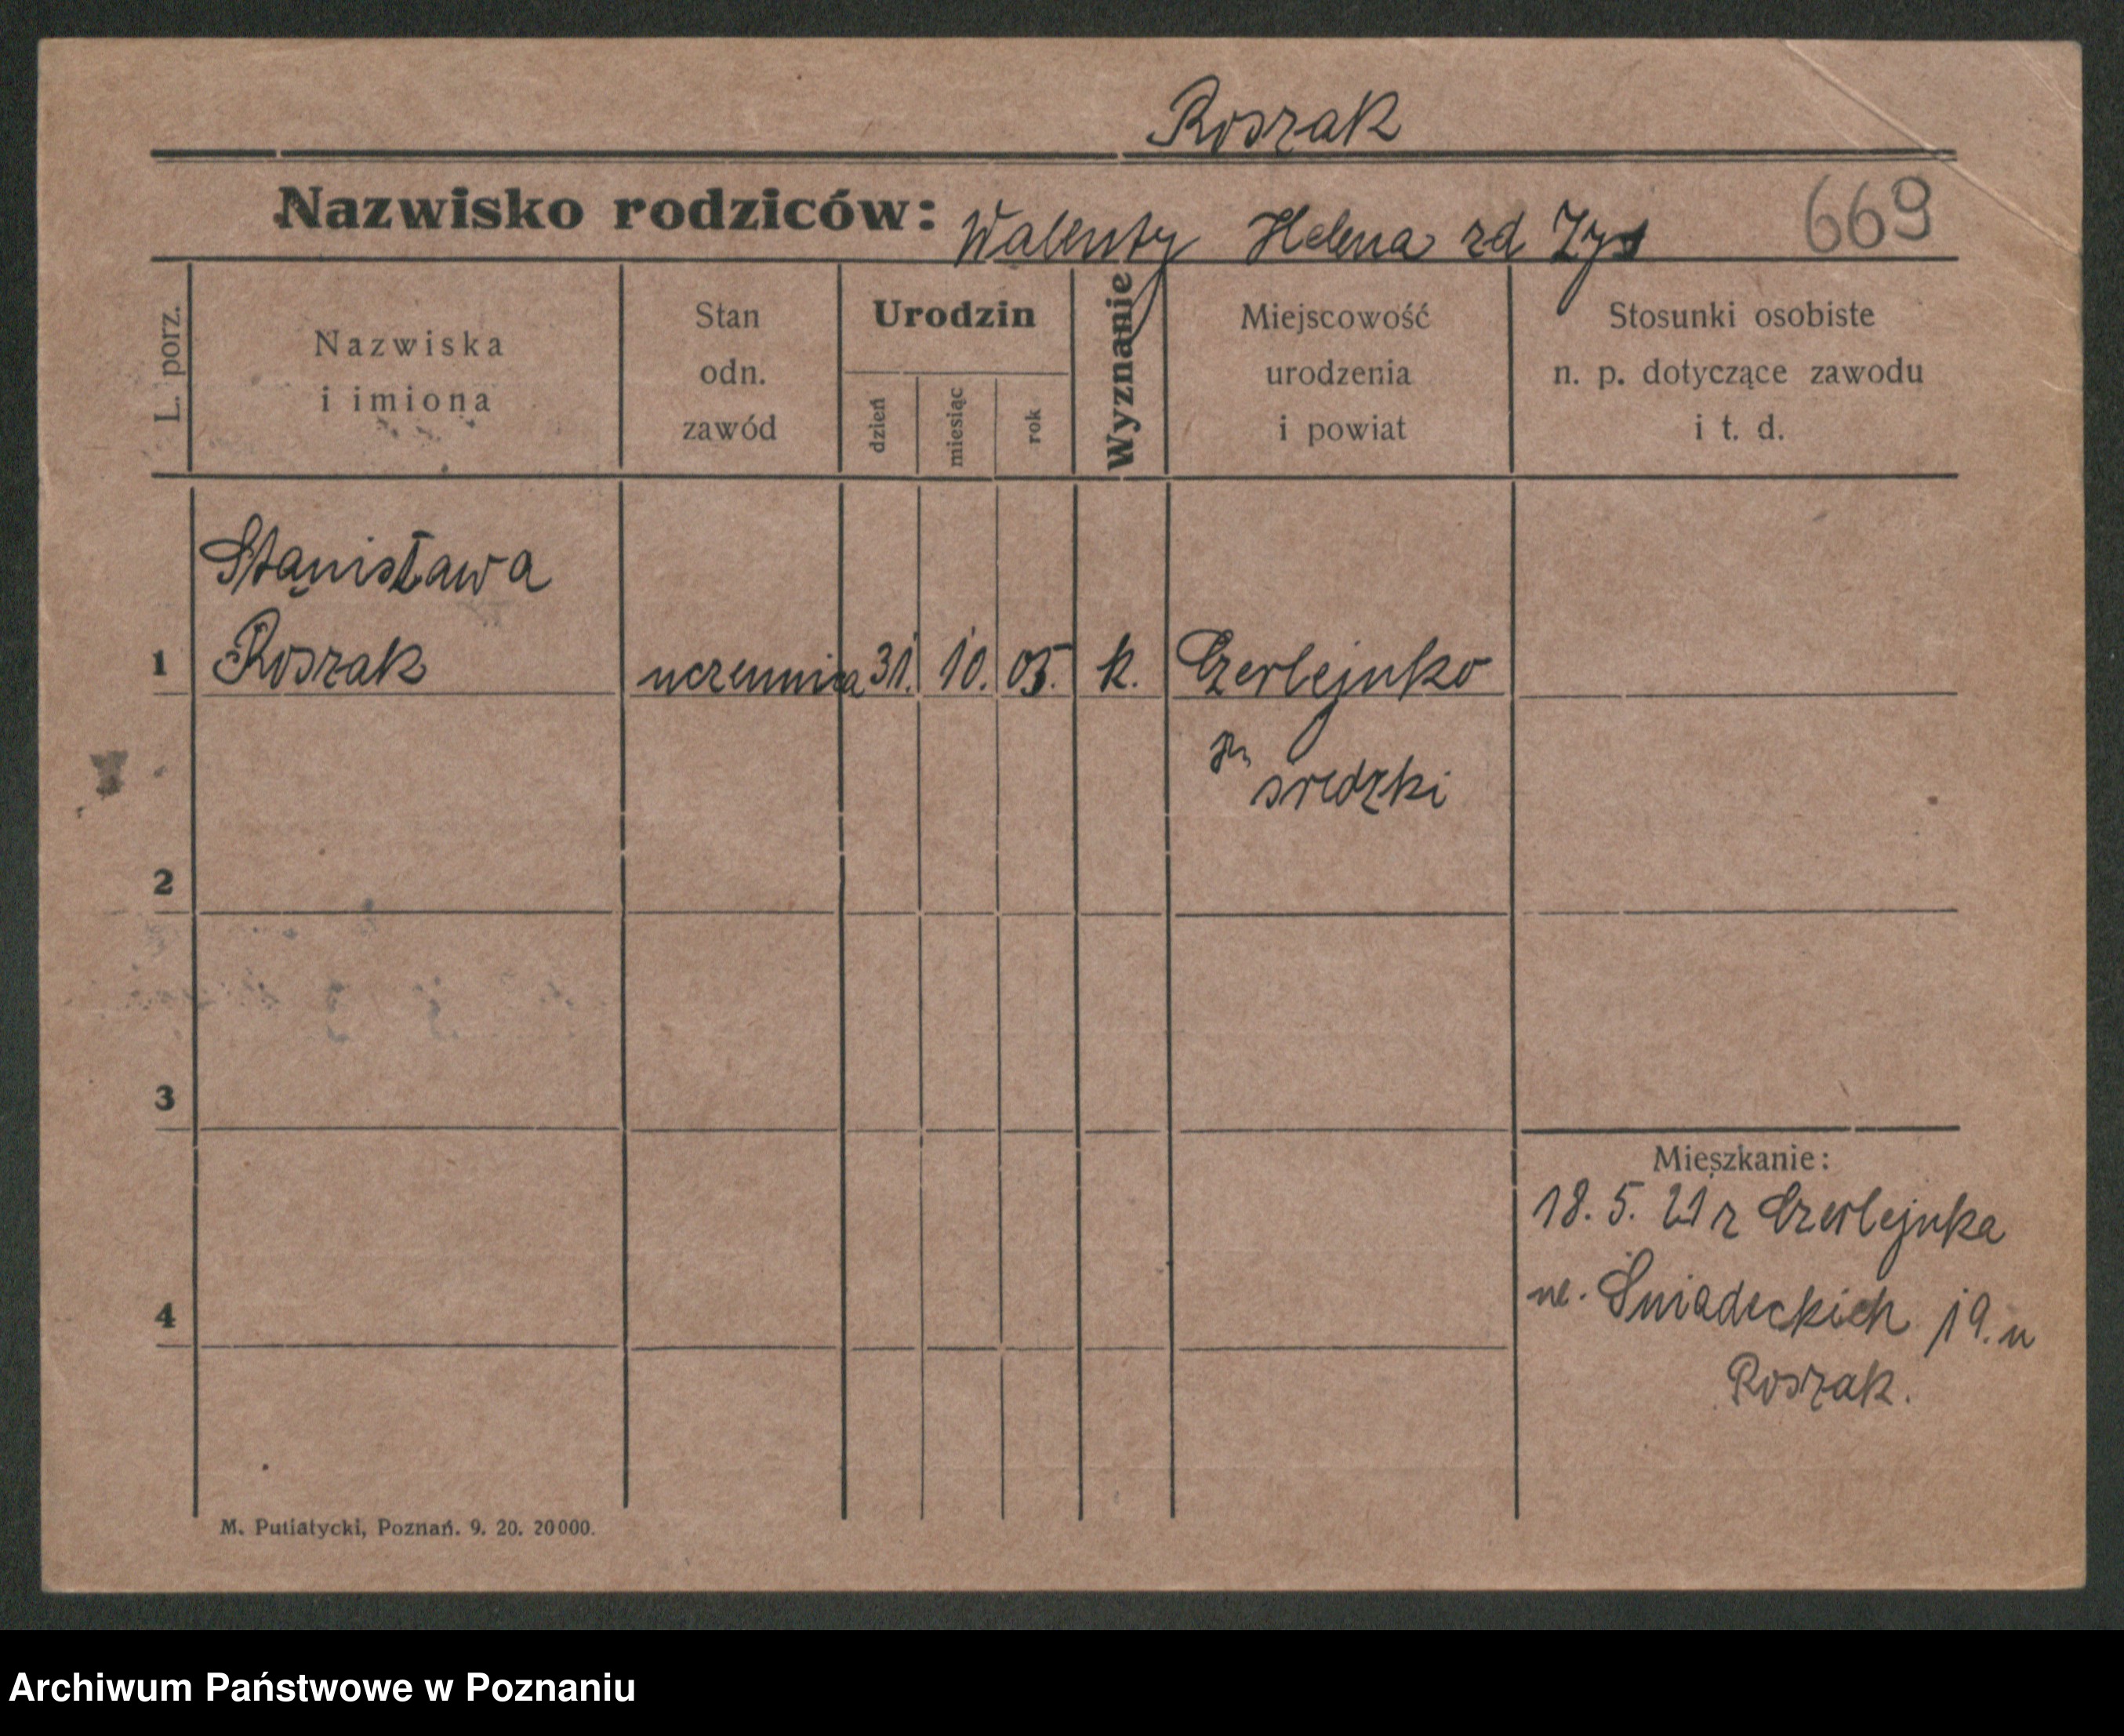 Roszak
Nazwisko rodziców: Walenty Helena zd Zys 669
L. porz.
Nazwiska
i imiona
Stan
odn.
zawód
Urodzin
dzień
miesiąc
rok
Wyznanie
Miejscowość
urodzenia
i powiat
Stosunki osobiste
n. p. dotyczące zawodu
i t. d.
Stanisława
1 Roszak uczennica 31. 10. 05. k. Czerlejnko
średzki
2
3
Mieszkanie:
18. 5. 21 z Czerlejnka
4 ul. Śniadeckich 19. u
Roszak.
M. Putiatycki, Poznań. 9. 20. 20000.
Archiwum Państwowe w Poznaniu